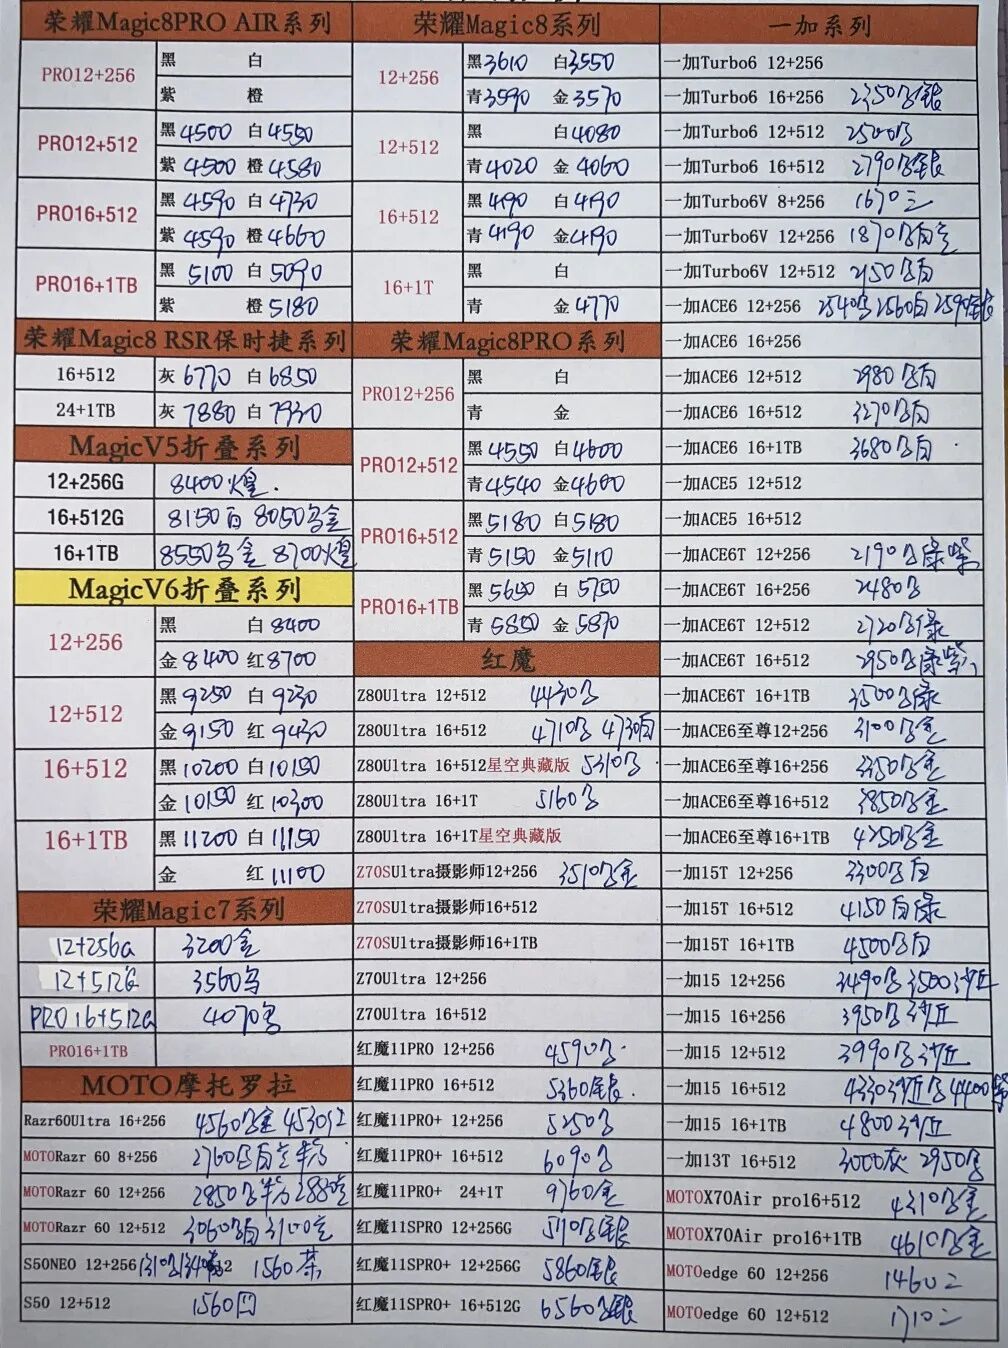 荣耀Magic8PRO AIR系列
PRO12+256 黑 白
紫 橙
PRO12+512 黑4500 白4550
紫4500 橙4580
PRO16+512 黑4590 白4730
紫4590 橙4660
PRO16+1TB 黑5100 白5090
紫 橙5180
荣耀Magic8 RSR保时捷系列
16+512 灰6770 白6850
24+1TB 灰7880 白7930
MagicV5折叠系列
12+256G 8400
16+512G 8150白 8050乌金
16+1TB 8550乌金 8700
MagicV6折叠系列
12+256 黑 白8400
金8400 红8700
12+512 黑9250 白9230
金9150 红9430
16+512 黑10200 白10150
金10150 红10300
16+1TB 黑11200 白11150
金 红11100
荣耀Magic7系列
12+256G 3200金
12+512G 3560
PRO16+512G 4070
PRO16+1TB
MOTO摩托罗拉
Razr60Ultra 16+256 4560 金 4530红
MOTORazr 60 8+256 2760
MOTORazr 60 12+256 2850
MOTORazr 60 12+512 3060 3100
S50NEO 12+256 1310 1560茶
S50 12+512 1560
荣耀Magic8系列
12+256 黑3610 白3550
青3590 金3570
12+512 黑 白4080
青4020 金4060
16+512 黑4190 白4190
青4190 金4190
16+1T 黑 白
青 金4770
荣耀Magic8PRO系列
PRO12+256 黑 白
青 金
PRO12+512 黑4550 白4600
青4540 金4600
PRO16+512 黑5180 白5180
青5150 金5110
PRO16+1TB 黑5650 白5750
青5850 金5870
红魔
Z80Ultra 12+512 4430
Z80Ultra 16+512 4710 4730白
Z80Ultra 16+512星空典藏版 5310
Z80Ultra 16+1T 5160
Z80Ultra 16+1T星空典藏版
Z70SUltra摄影师12+256 3510 金
Z70SUltra摄影师16+512
Z70SUltra摄影师16+1TB
Z70Ultra 12+256
Z70Ultra 16+512
红魔11PRO 12+256 4590
红魔11PRO 16+512 5360银
红魔11PRO+ 12+256 5250
红魔11PRO+ 16+512 6090
红魔11PRO+ 24+1T 9760金
红魔11SPRO 12+256G 5110 银
红魔11SPRO+ 12+256G 5860银
红魔11SPRO+ 16+512G 6560 银
一加系列
一加Turbo6 12+256
一加Turbo6 16+256 2350 银
一加Turbo6 12+512 2500
一加Turbo6 16+512 2790 银
一加Turbo6V 8+256 1670三
一加Turbo6V 12+256 1870 白
一加Turbo6V 12+512 2150 白
一加ACE6 12+256 2540 2560白 2590银
一加ACE6 16+256
一加ACE6 12+512 2980 白
一加ACE6 16+512 3270 白
一加ACE6 16+1TB 3680 白
一加ACE5 12+512
一加ACE5 16+512
一加ACE6T 12+256 2190 绿紫
一加ACE6T 16+256 2480
一加ACE6T 12+512 2720 绿
一加ACE6T 16+512 2950 绿紫
一加ACE6T 16+1TB 3500 绿
一加ACE6至尊12+256 3100 金
一加ACE6至尊16+256 3350 金
一加ACE6至尊16+512 3850 金
一加ACE6至尊16+1TB 4250 金
一加15T 12+256 3300 白
一加15T 16+512 4150白绿
一加15T 16+1TB 4500 白
一加15 12+256 3490 3500沙丘
一加15 16+256 3950 沙丘
一加15 12+512 3990 沙丘
一加15 16+512 4330沙丘 4400紫
一加15 16+1TB 4800沙丘
一加13T 16+512 3000灰 2950
MOTOX70Air pro16+512 4310 金
MOTOX70Air pro16+1TB 4610 金
MOTOedge 60 12+256 1460二
MOTOedge 60 12+512 1710二